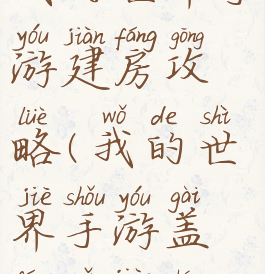 yóu jiàn fáng gōng
游建房攻
lüè wǒ de shì
略(我的世
jiè shǒu yóu gài
界手游盖